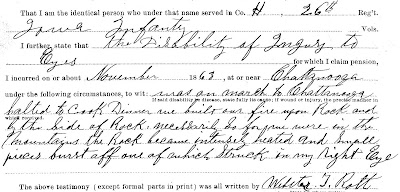 That I am the identical person who under that name served in Co. H. 26th Reg't.
Iowa Infantry Vols.
I further state that the Disability of Injury to
Eyes for which I claim pension,
I incurred on or about November 1863, at or near Chattanooga
under the following circumstances, to wit: was on march to Chattanooga
If said disability is disease, state fully its cause; if wound or injury, the precise manner in
which received.
halted to Cook Dinner we built our fire upon Rock and
by the side of Rock, necessarily so for we were in the
mountains the Rock became intensely heated and small
pieces burst off one of which struck in my Right Eye
The above testimony (except formal parts in print) was all written by Milton T. Roth